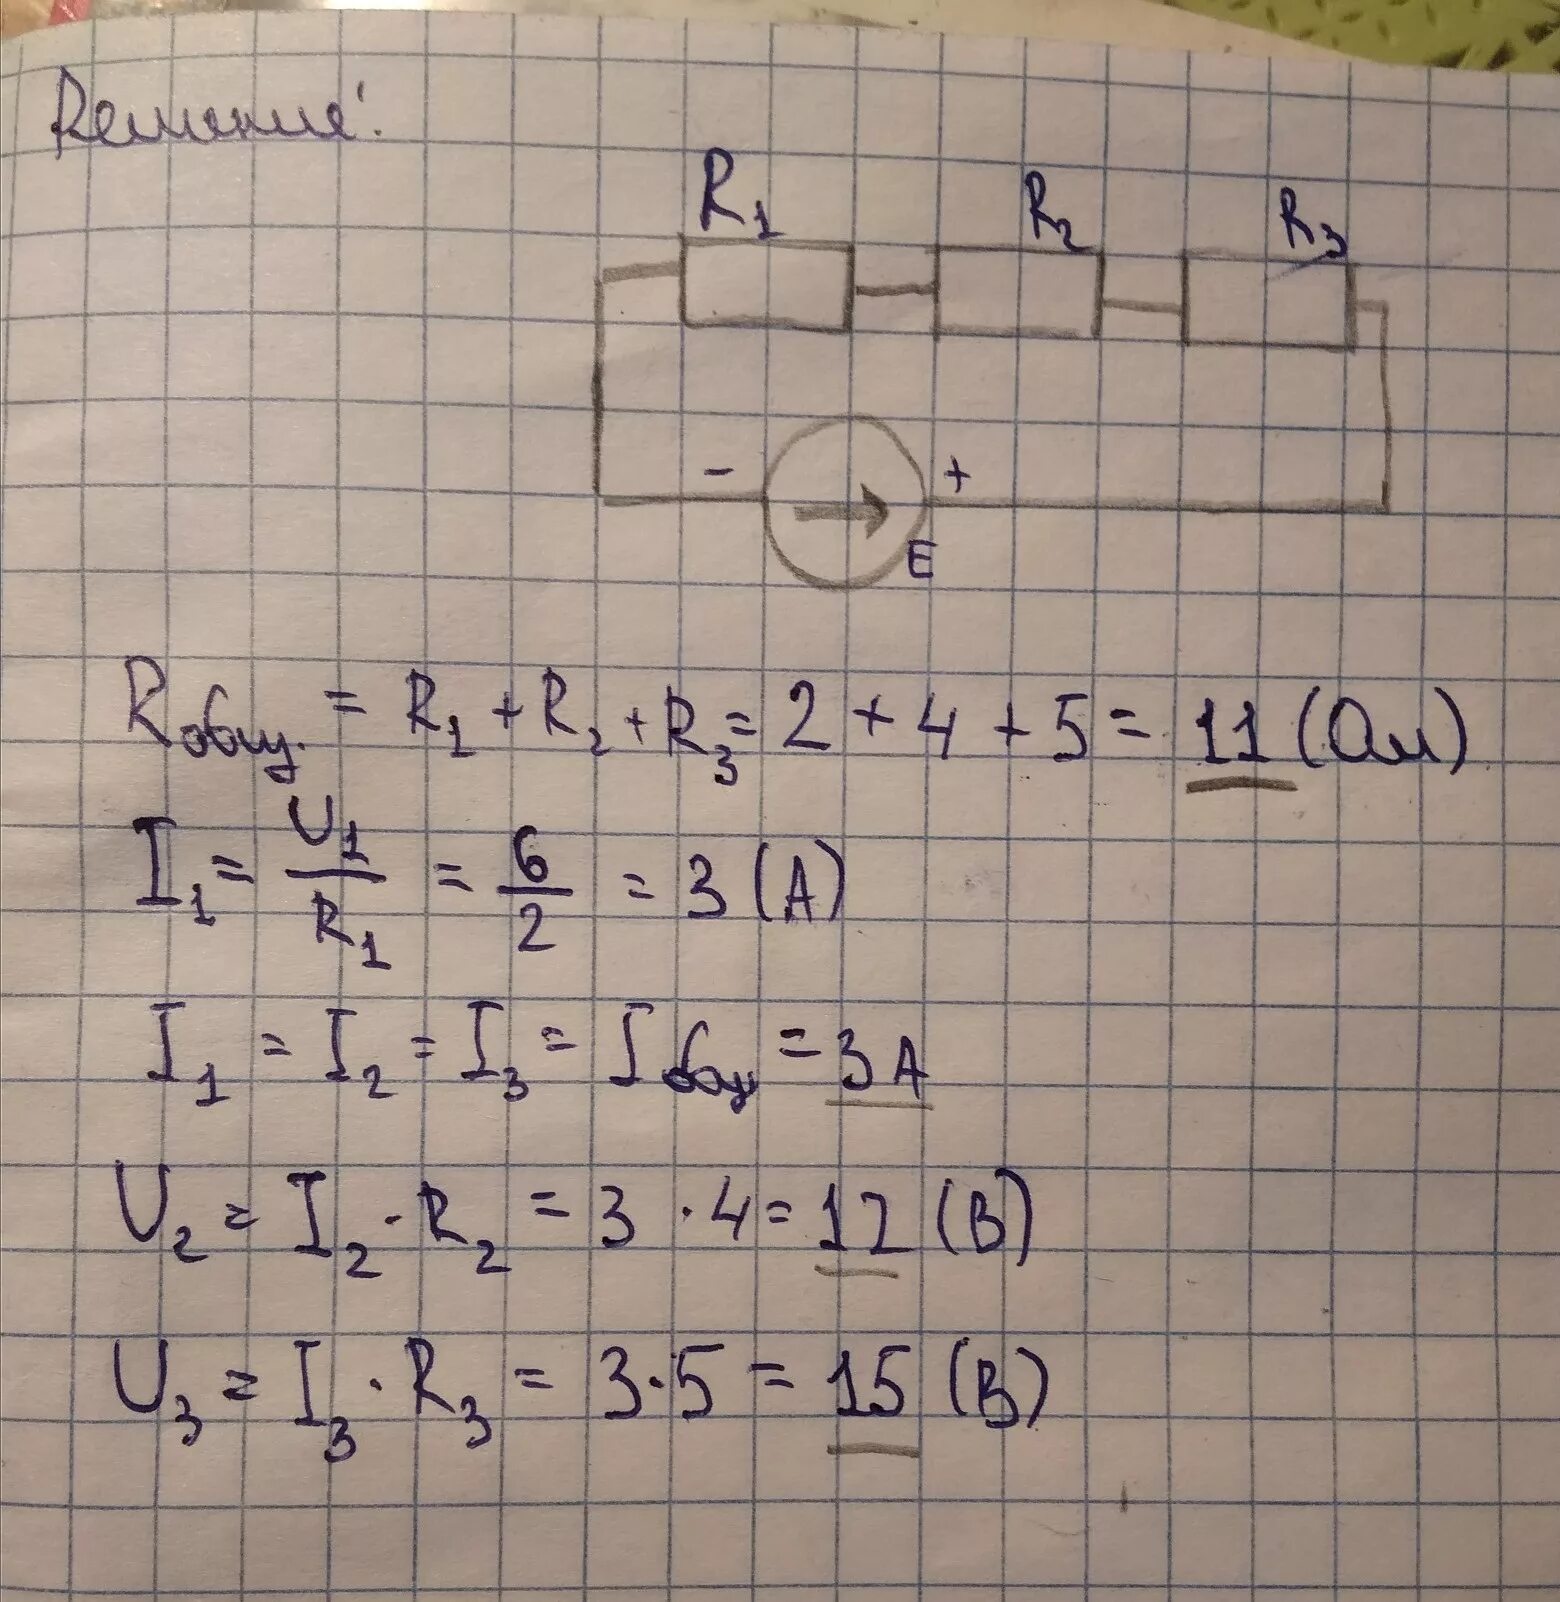 Решение:
R₁ R₂ R₃
- +
E
Rобщ. = R₁ + R₂ + R₃ = 2 + 4 + 5 = 11 (Ом)
I₁ = U₁/R₁ = 6/2 = 3 (А)
I₁ = I₂ = I₃ = Iобщ = 3А
U₂ = I₂ · R₂ = 3 · 4 = 12 (В)
U₃ = I₃ · R₃ = 3 · 5 = 15 (В)